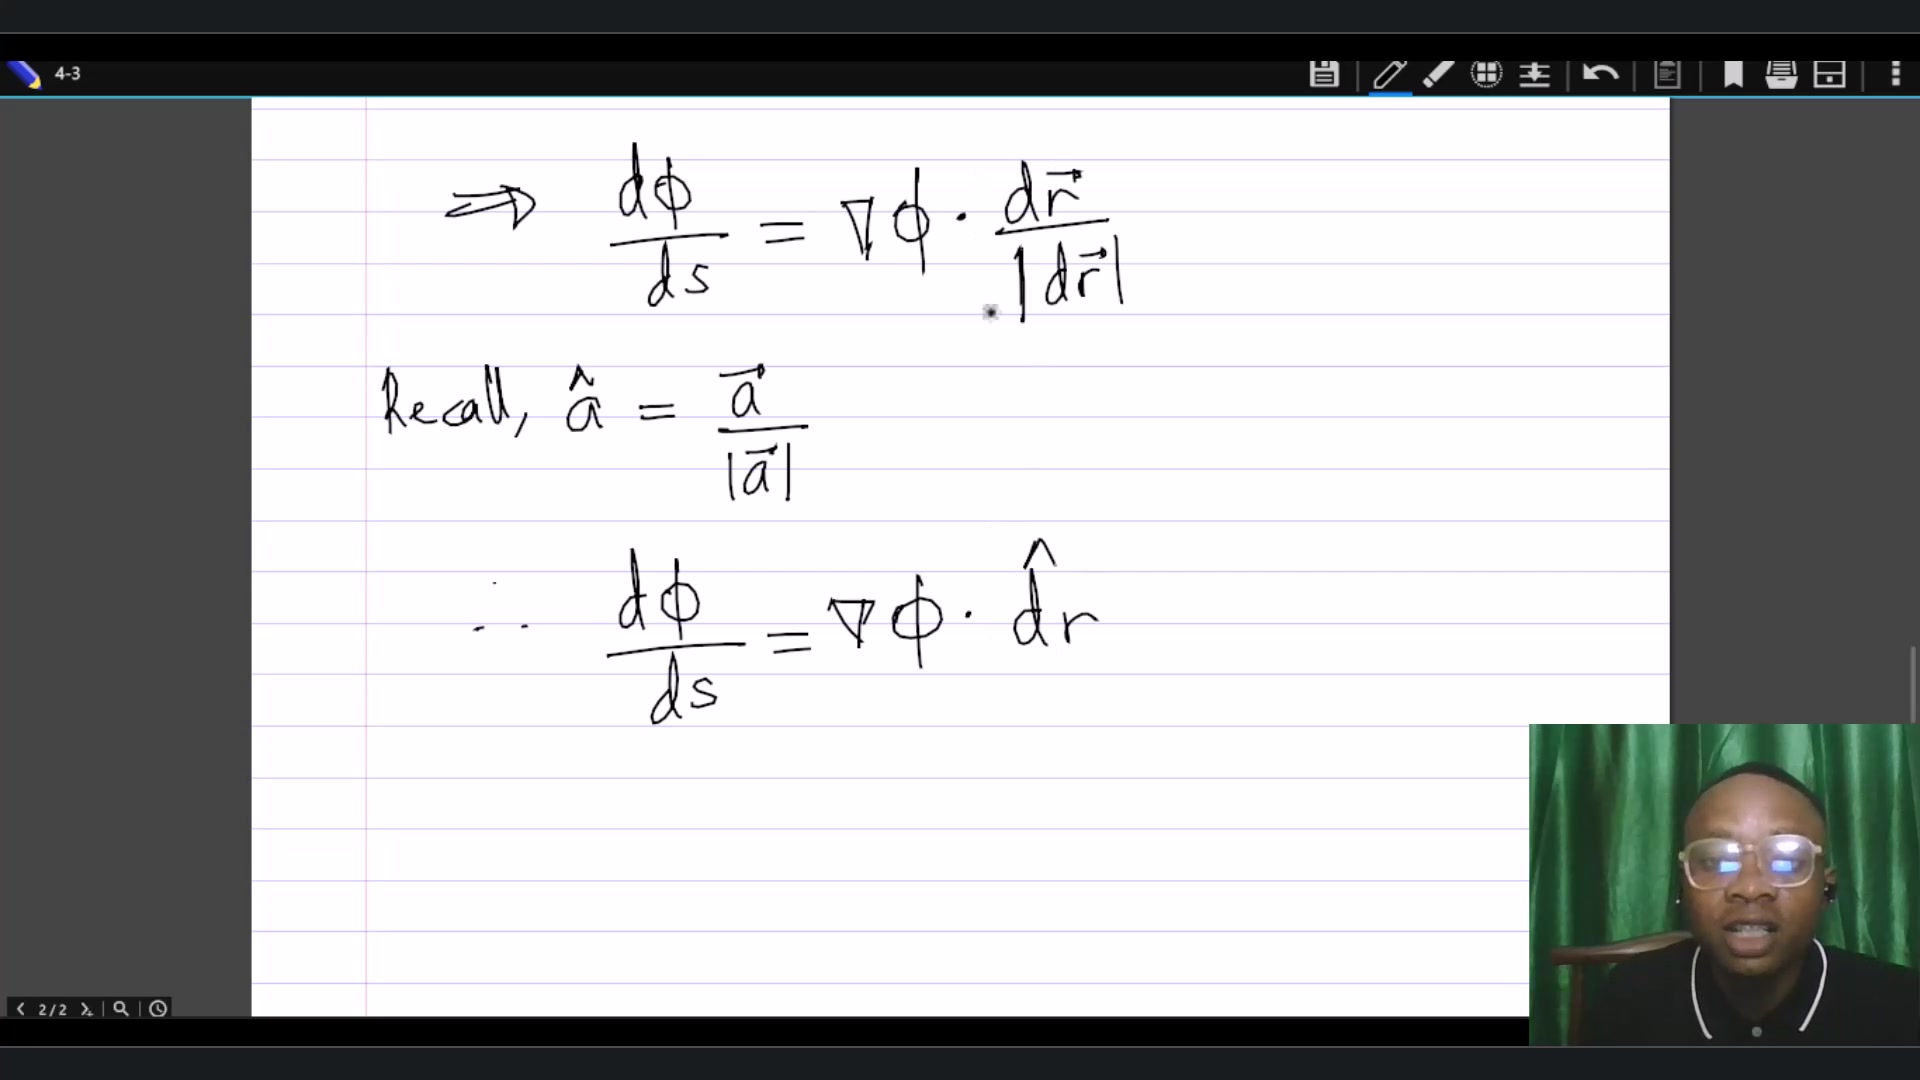 4-3
⇒ dφ/ds = ∇φ · dr⃗/|dr⃗|
Recall, â = a⃗/|a⃗|
∴ dφ/ds = ∇φ · d̂r
2/2